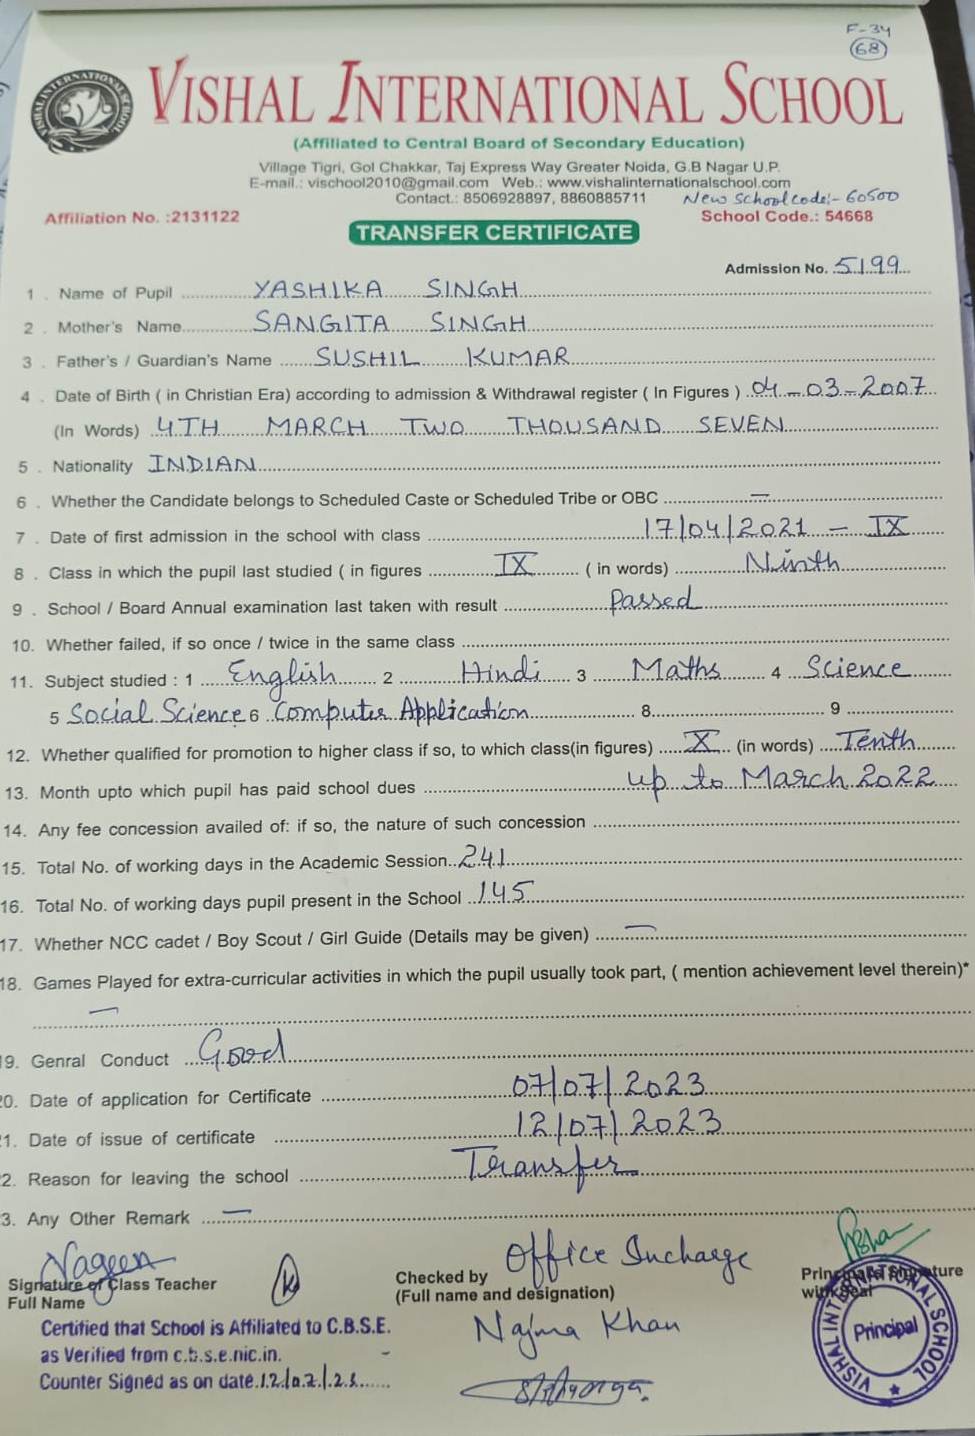 F-34
68
VISHAL INTERNATIONAL SCHOOL
(Affiliated to Central Board of Secondary Education)
Village Tigri, Gol Chakkar, Taj Express Way Greater Noida, G.B Nagar U.P.
E-mail.: vischool2010@gmail.com Web.: www.vishalinternationalschool.com
Contact.: 8506928897, 8860885711 New School code:- 60500
Affiliation No. :2131122 School Code.: 54668
TRANSFER CERTIFICATE
Admission No. 5199
1 . Name of Pupil YASHIKA SINGH
2 . Mother's Name SANGITA SINGH
3 . Father's / Guardian's Name SUSHIL KUMAR
4 . Date of Birth ( in Christian Era) according to admission & Withdrawal register ( In Figures ) 04-03-2007
(In Words) 4TH MARCH TWO THOUSAND SEVEN
5 . Nationality INDIAN
6 . Whether the Candidate belongs to Scheduled Caste or Scheduled Tribe or OBC —
7 . Date of first admission in the school with class 17/04/2021 - IX
8 . Class in which the pupil last studied ( in figures IX ( in words) Ninth
9 . School / Board Annual examination last taken with result Passed
10. Whether failed, if so once / twice in the same class
11. Subject studied : 1 English 2 Hindi 3 Maths 4 Science
5 Social Science 6 Computer Application 8 9
12. Whether qualified for promotion to higher class if so, to which class(in figures) X (in words) Tenth
13. Month upto which pupil has paid school dues up to March 2022
14. Any fee concession availed of: if so, the nature of such concession
15. Total No. of working days in the Academic Session 241
16. Total No. of working days pupil present in the School 145
17. Whether NCC cadet / Boy Scout / Girl Guide (Details may be given) —
18. Games Played for extra-curricular activities in which the pupil usually took part, ( mention achievement level therein)*
—
19. Genral Conduct Good
20. Date of application for Certificate 07/07/2023
21. Date of issue of certificate 12/07/2023
2. Reason for leaving the school Transfer
3. Any Other Remark —
Nageen
Signature of Class Teacher
Full Name
Checked by Office Incharge
(Full name and designation)
Najma Khan
Principal's Signature
with Seal
VISHAL INTERNATIONAL SCHOOL
Principal
Certified that School is Affiliated to C.B.S.E.
as Verified from c.b.s.e.nic.in.
Counter Signed as on date